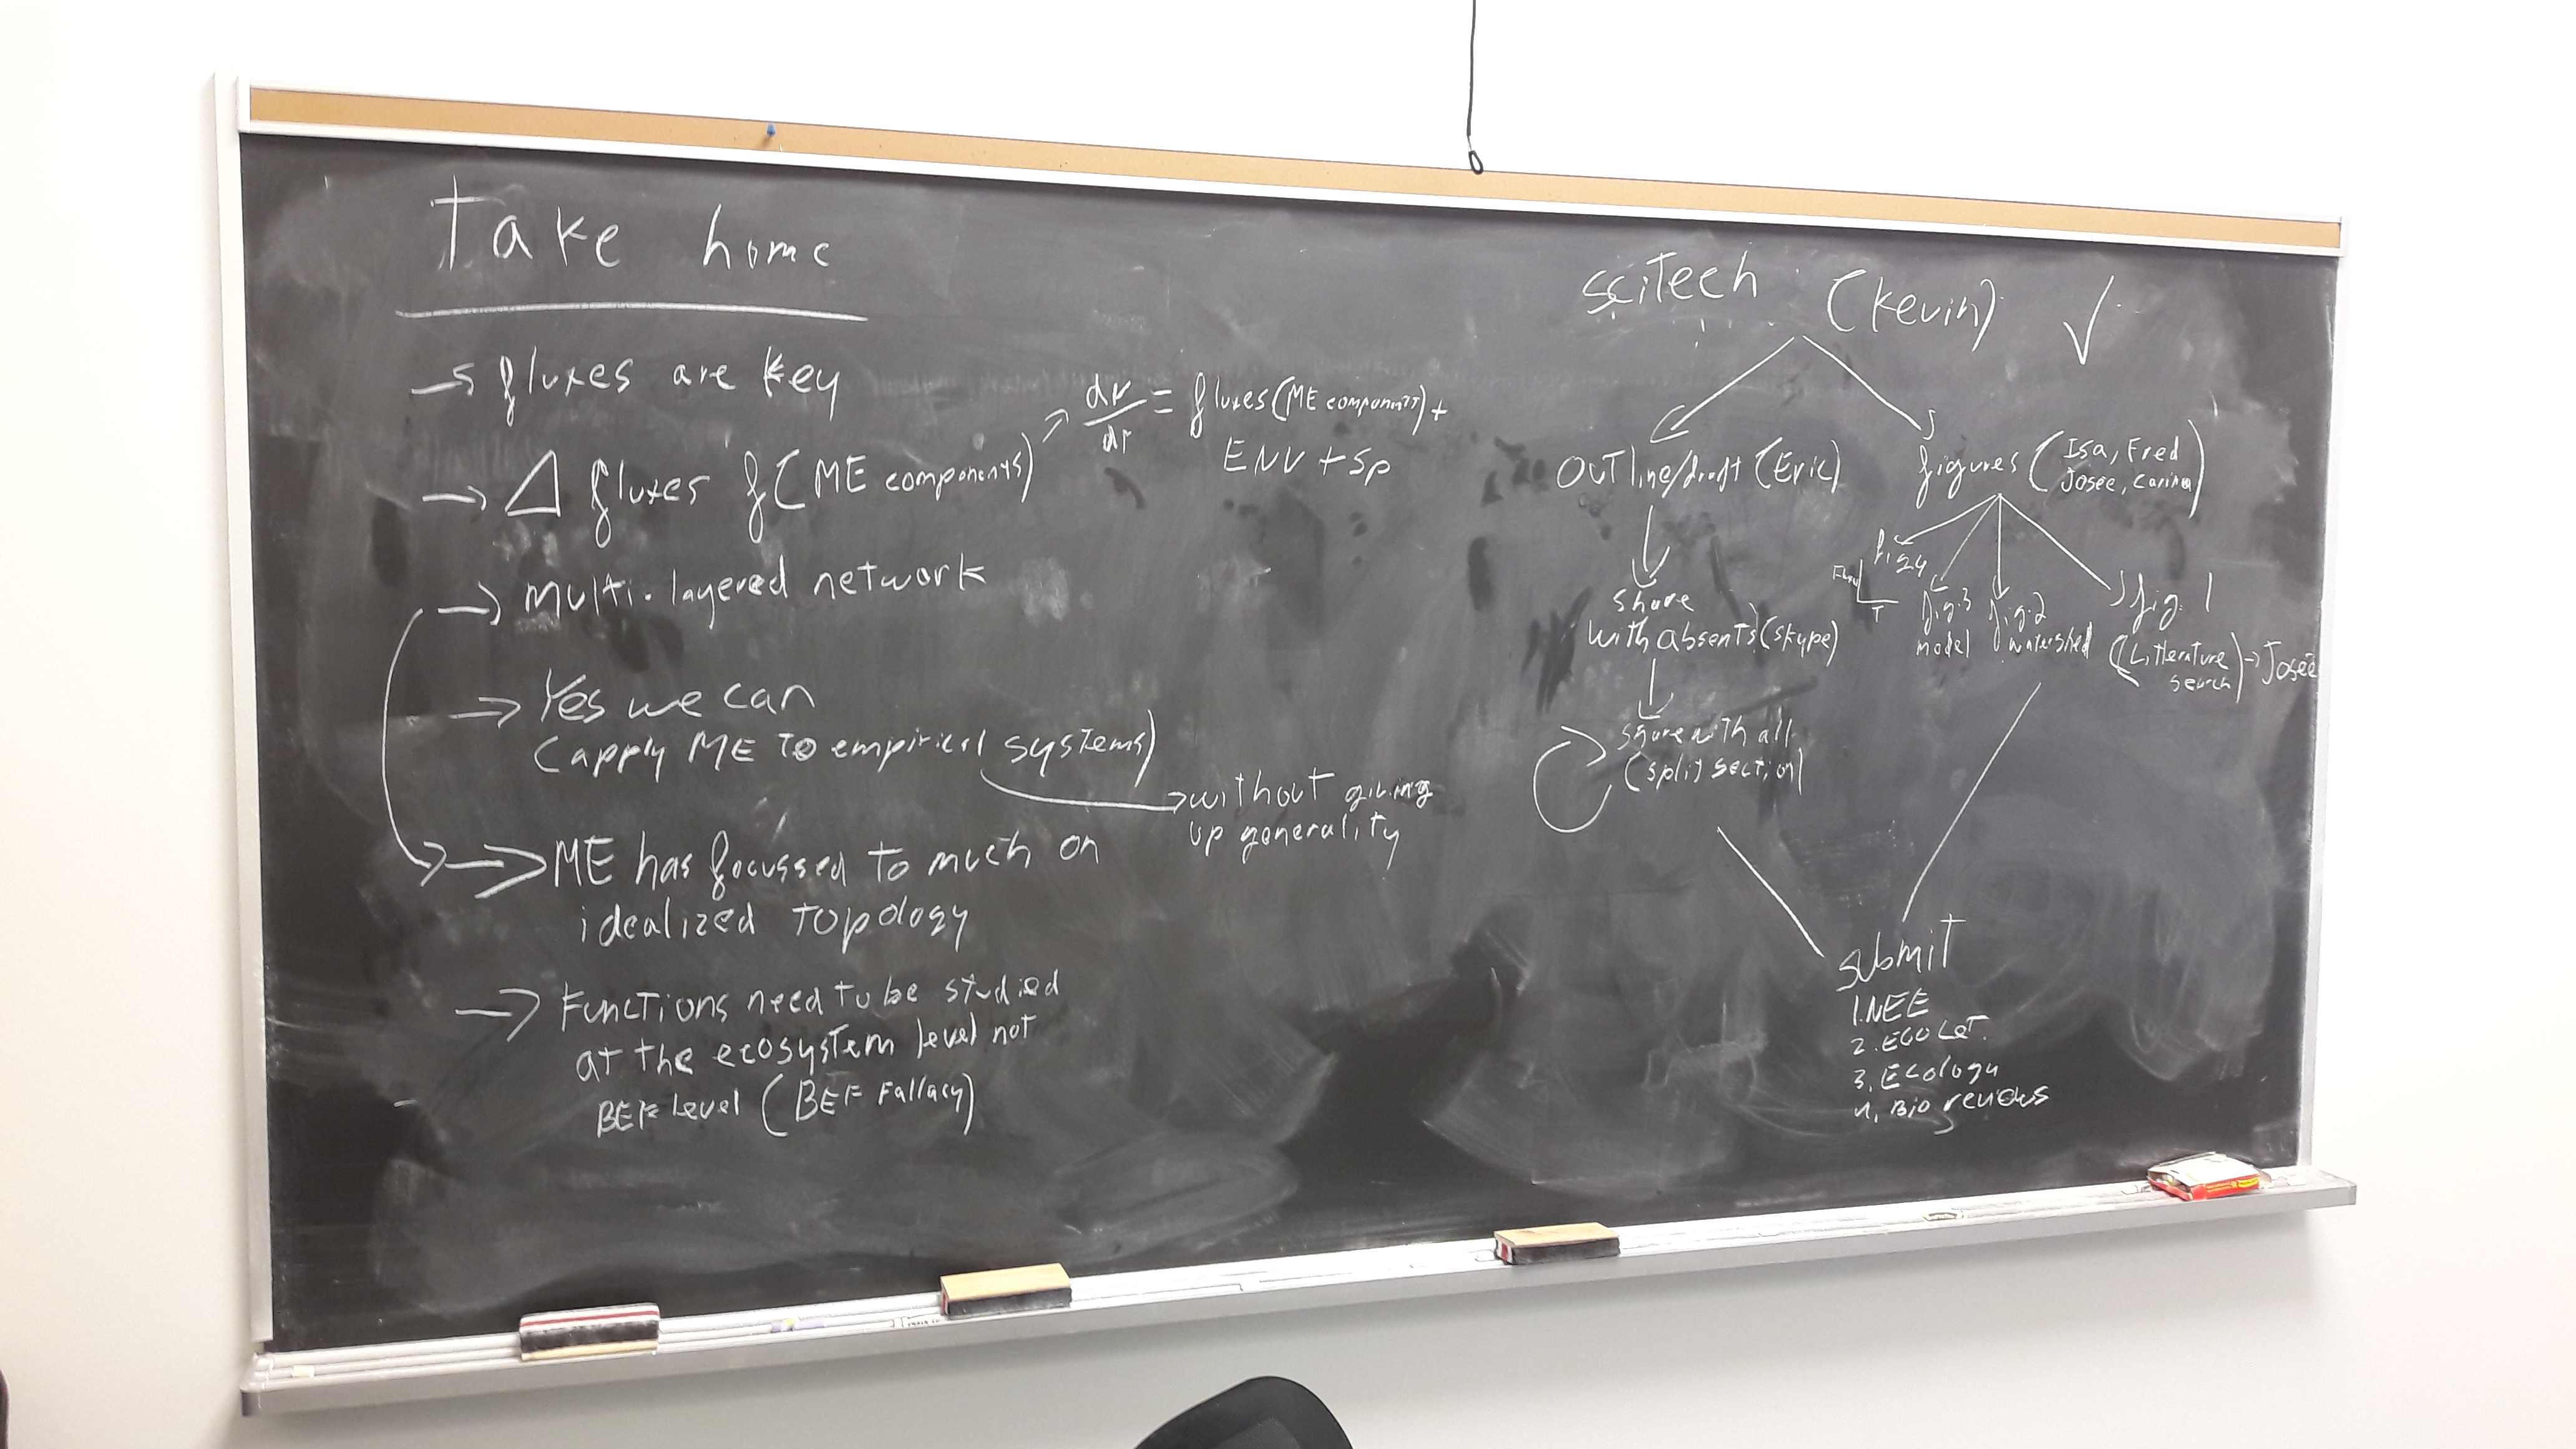 Take home
→ fluxes are key
→ Δ fluxes f(ME components)
↗ dV/dt = fluxes (ME components) +
ENV + Sp
→ multi-layered network
→ Yes we can
(apply ME to empirical systems)
→ without giving
up generality
→ ME has focussed to much on
idealized topology
→ Functions need to be studied
at the ecosystem level not
BEF level (BEF Fallacy)
scitech (Kevin) ✓
outline/draft (Eric)
share
with absents (skype)
share with all
(split section)
figures (Isa, Fred
Josée, Carina)
fig 4
T
fig.3
model
fig.2
watershed
fig. 1
(Litterature
search) → Josée
submit
1. NEE
2. ECO LET.
3. Ecology
4. Bio reviews